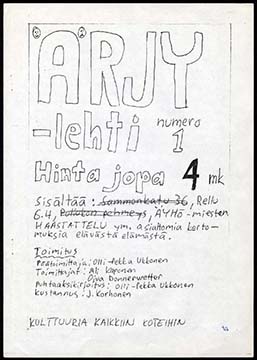 ÄRJY
-lehti numero
1
Hinta jopa 4 mk
Sisältää: Sammonkatu 36, Rellu
6.4, Polluton pehmeys, ÄYHÖ-miesten
HAASTATTELU ym. asiattomia kerto-
muksia elävästä elämästä.
Toimitus
Päätoimittaja: Olli-Pekka Ukkonen
Toimittajat: Ali Kaponen
Oiva Donnerwetter
Puhtaaksikirjoitus: Olli-Pekka Ukkonen
Kustannus: J. Korhonen
KULTTUURIA KAIKKIIN KOTEIHIN